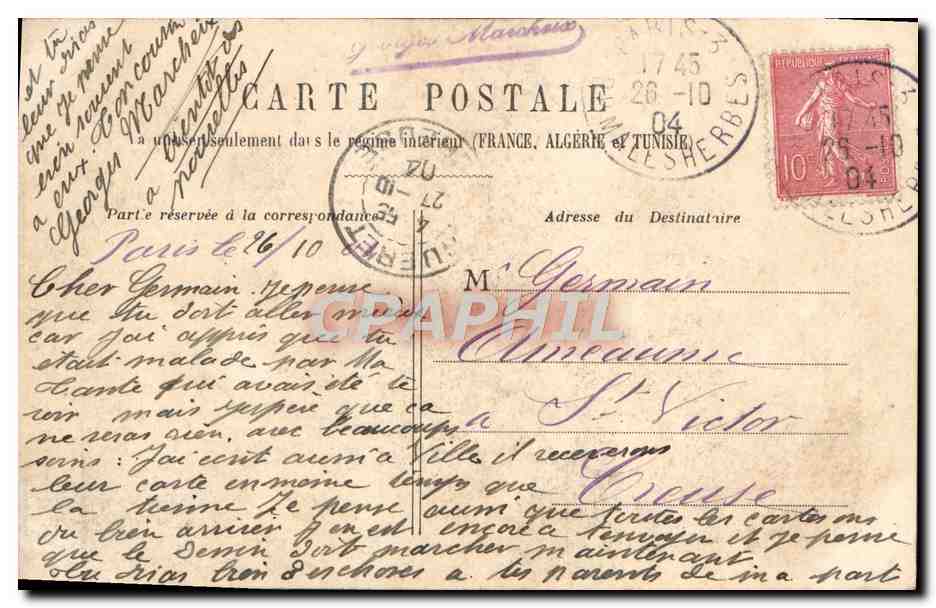 Georges Marcheix
CARTE POSTALE
La u seulement dans le régime intérieur (FRANCE, ALGÉRIE et TUNISIE)
PARIS-3
17 45
26 -10
04
Bd MALESHERBES
REPUBLIQUE FRANÇAISE
10
GUERET
27 -10
04
Partie réservée à la correspondance
Adresse du Destinataire
Paris le 26/10
M Germain
Améaume
a St Victor
Creuse
Cher Germain. Je pense
que tu doit aller mieux
car J'ai appris que tu
etait malade par Ma
Tante qui avais été te
voir mais J'espère que ca
ne seras rien. avec beaucoups
soins: J'ai ecrit aussi a Ville, il receverons
leur carte en meme temps que
la tienne Je pense aussi que toutes les cartes ons
du bien arriver J'en est encore a t'envoyer et Je pense
que le dessin doit marcher maintenant
tu diras bien des choses a tes parents de ma part
et tu
leur diras
que je pense
bien souvent
a eux. Ton cousin
Georges Marcheix
a bientot des
nouvelles
CPAPHIL